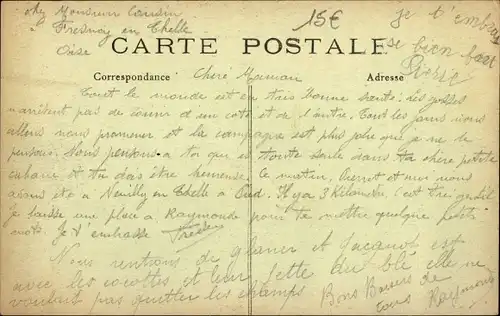 chez Monsieur Cousin
Fresnoy en Thelle
Oise
15€
je t'embrasse
bien fort
Pierre
CARTE POSTALE
Correspondance
Adresse
Chère Maman
Tout le monde est en très bonne santé. Les gosses
n'arrêtent pas de courir d'un côté et de l'autre. Tous les jours nous
allons nous promener et la campagne est plus plus que je ne le
pensais. Nous pensons a toi qui es toute seule dans ta chère petite
cabane et tu dois être heureuse. Ce matin, et moi nous
avons été a Neuilly en Thelle à pied. Il y a 3 kilomètres. C'est très gentil
je laisse une place a Raymonde pour te mettre quelque petit
mots. Je t'embrasse
Nous rentrons de glaner et Jacquot est
avec les cocottes et leur jette du blé elle ne
voulait pas quitter les champs
Bons Baisers de
tous Raymonde